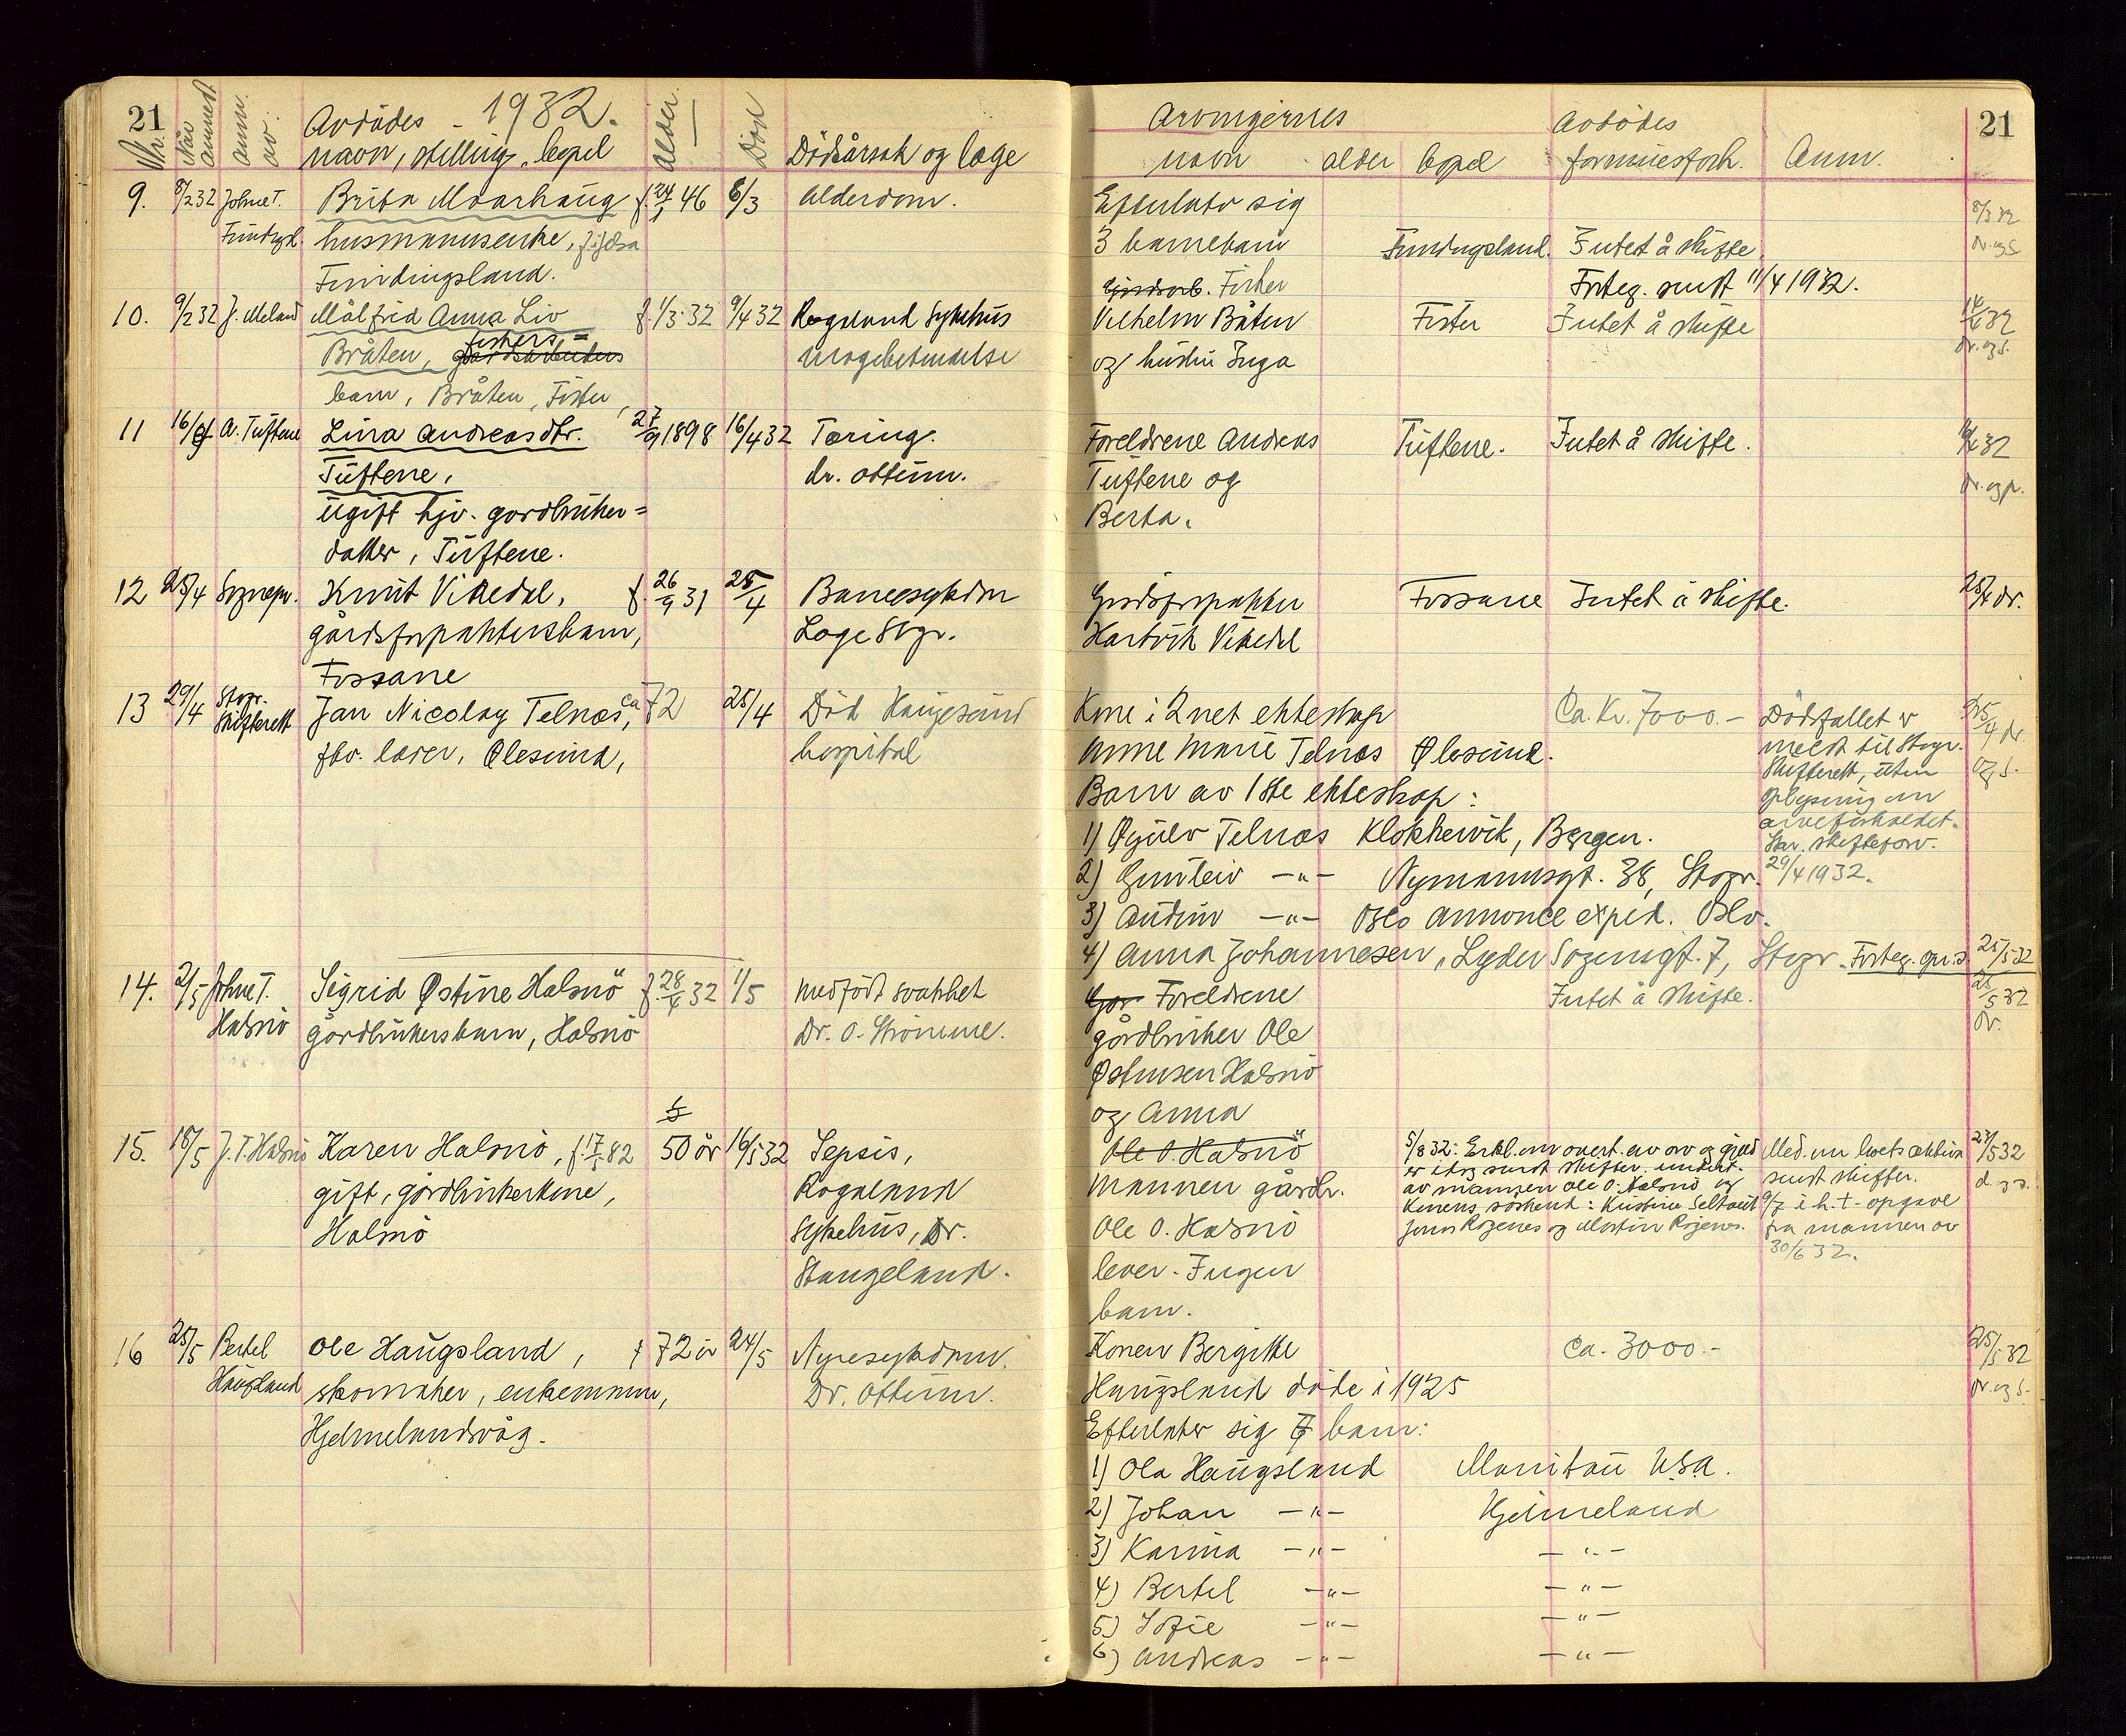 21
Nr.
Når anmeldt
anm. av.
Avdödes - 1932.
navn, stilling, bopel
Alder
Död
Dödsårsak og lage
9. 8/3 32 Johne T. Brita Maarhaug f. 24/1 46 6/3 Alderdom.
husmannsenke,
Fundingsland.
10. 9/4 32 J. Meland Målfrid Anna Liv f. 1/3 32 9/4 32 Rogaland Sykehus
fiskers=
Bråten, gårdsarbeiders
barn, Bråten, Fister
11 16/4 A. Tuftene Lina Andreasdtr. 27/9 1898 16/4 32 Tæring.
Tuftene, dr. Ottium.
ugift hjv. gardbruker=
datter, Tuftene.
12 25/4 Sognepr. Knut Vikedal, f. 26/9 31 25/4
gårdsforpakterbarn, Lage Stgr.
Fossane
13 29/4 Stgr. Skifterett Jan Nicolay Telnæs, ca 72 25/4 Död Haugesund
fhv. lærer, Ølesund, hospital
14. 2/5 Johne T. Sigrid Østine Halsnö f. 28/4 32 1/5 medfödt svakhet
Halsnö gårdbrukersbarn, Halsnö Dr. O. Strömme.
15. 18/5 J. T. Halsnö Karen Halsnö, f. 17/5 82 50 år 16/5 32 Sepsis,
gift, gårdbrukerkone, Rogaland
Halsnö Sykehus, Dr.
Stangeland.
16 25/5 Bertel Ole Haugsland, 72 år 24/5 Nyresykdom.
Haugsland skomaker, enkemann, Dr. Ottium.
Hjelmelandsvåg.
21
Arvingernes
navn alder bopel
Avdödes
formuesforh. Anm.
Efterlater sig
3 barnebarn Fundingsland. Intet å skifte.
Fisker Forteg. sendt 11/4 1932.
Vilhelm Bråten Fister Intet å skifte
og hustru Inga
Foreldrene Andreas Tuftene. Intet å skifte.
Tuftene og
Berta.
Gårdsforpakter Fossane Intet å skifte. 25/4 dr.
Hartvik Vikedal
Kone i 2net ekteskap Ca. Kr. 7000.- Dödsfallet er
Anne Marie Telnæs Ølesund. meldt til Stgr.
Skifterett, uten
Barn av 1ste ekteskap: oplysning om
arveforholdet.
1) Øyulv Telnæs Klokkervik, Bergen.
2) Gunleiv -"- Nymannsgt. 38, Stgr. 29/4 1932.
3) Audun -"- Oslo annonce exped. Oslo.
4) Anna Johannesen, Lyder Sagensgt. 7, Stgr. 25/5 32
Foreldrene Intet å skifte. 25/5 32
gårdbruker Ole dr.
Østensen Halsnö
og Anna
Ole O. Halsnö 5/8 32: Erkl. om overt. av arv og gjeld
er idag sendt skifter. undert.
av mannen Ole O. Halsnö og
mannen gårdbr. sendt skifter.
Ole O. Halsnö 9/7 i h. t. opgave
fra mannen av
30/6 32.
lever. Ingen
barn.
Konen Bergitte Ca. 3000.- 25/5 32
Haugsland döde i 1925 dr. og s.
Efterlater sig 7 barn:
1) Ola Haugsland Manitou USA.
2) Johan -"- Hjelmeland
3) Karina -"- -"-
4) Bertel -"- -"-
5) Sofie -"- -"-
6) Andreas -"- -"-